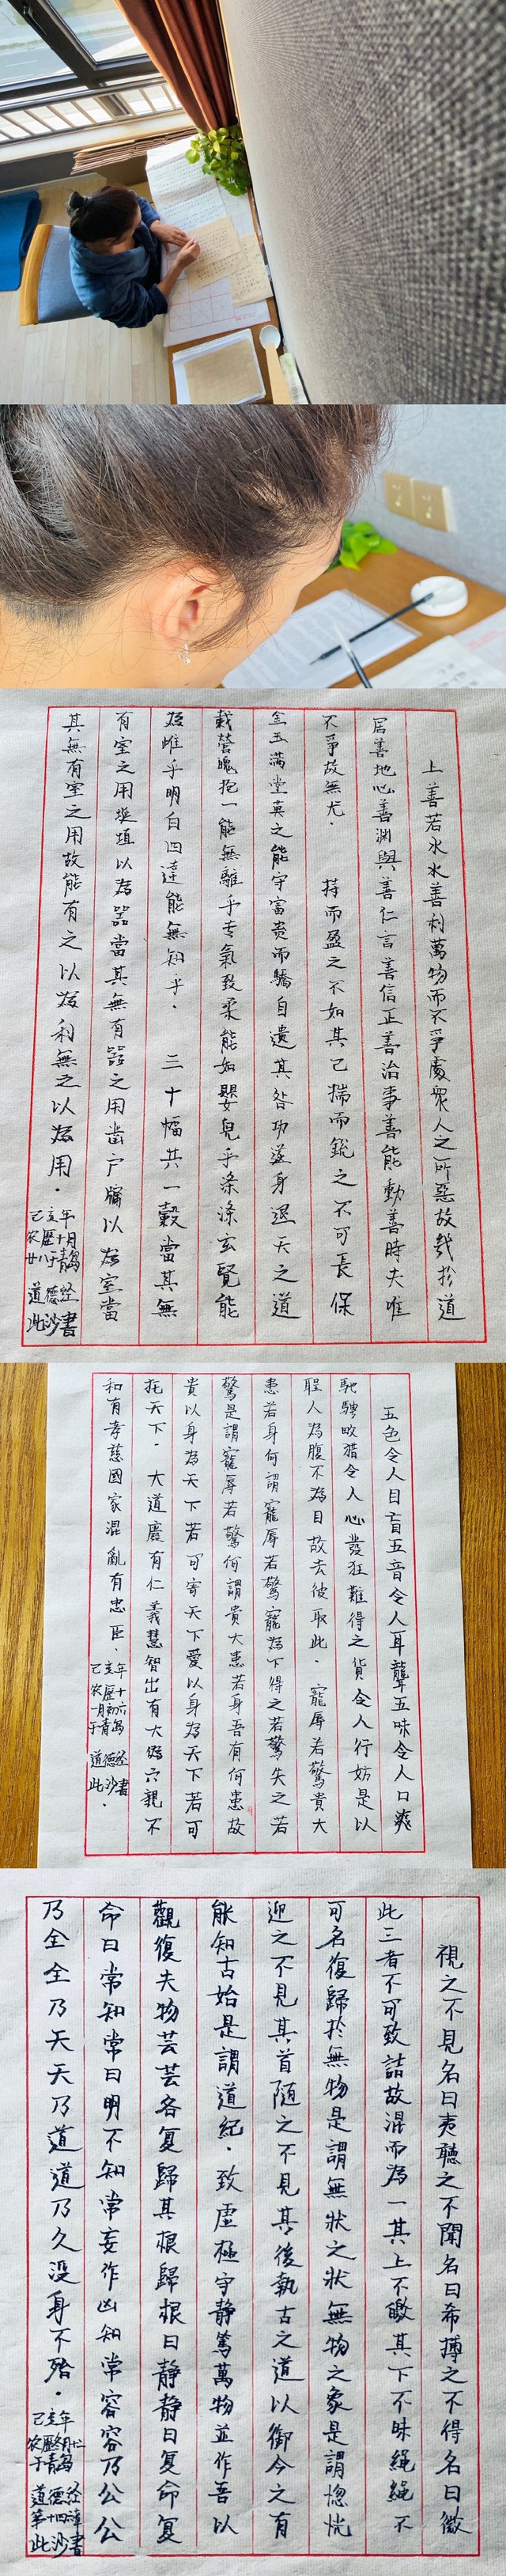 上善若水水善利萬物而不爭處衆人之所惡故幾於道
居善地心善淵與善仁言善信正善治事善能動善時夫唯
不爭故無尤．　持而盈之不如其已揣而銳之不可長保
金玉滿堂莫之能守富貴而驕自遺其咎功遂身退天之道
載營魄抱一能無離乎专氣致柔能如嬰兒乎涤涤玄覽能
為雌乎明白四達能無知乎．　三十幅共一轂當其無
有室之用埏埴以為器當其無有器之用凿户牖以為室當
其無有室之用故能有之以為利無之以為用．
己亥年
农歷十月
廿八于青島
道德经
此沙書
五色令人目盲五音令人耳聾五味令人口爽
馳騁畋猎令人心發狂難得之貨令人行妨是以
聖人為腹不為目故去彼取此．寵辱若驚貴大
患若身何謂寵辱若驚寵為下得之若驚失之若
驚是謂寵辱若驚何謂貴大患若身吾有何患故
貴以身為天下若可寄天下愛以身為天下若可
托天下．大道廢有仁義慧智出有大偽六親不
和有孝慈國家混亂有忠臣．
己亥年
农歷十
一月初六
于青島
道德经
此沙書．
視之不見名曰夷聽之不聞名曰希搏之不得名曰微
此三者不可致詰故混而為一其上不皦其下不昧绳绳不
可名復歸於無物是謂無狀之狀無物之象是謂惚恍
迎之不見其首随之不見其後執古之道以御今之有
能知古始是謂道紀．致虛極守静篤萬物並作吾以
觀復夫物芸芸各复歸其根歸根曰静静曰复命复
命曰常知常曰明不知常妄作凶知常容容乃公公
乃全全乃天天乃道道乃久没身不殆．
己亥年
于青島
道德经
第十四章
此沙書